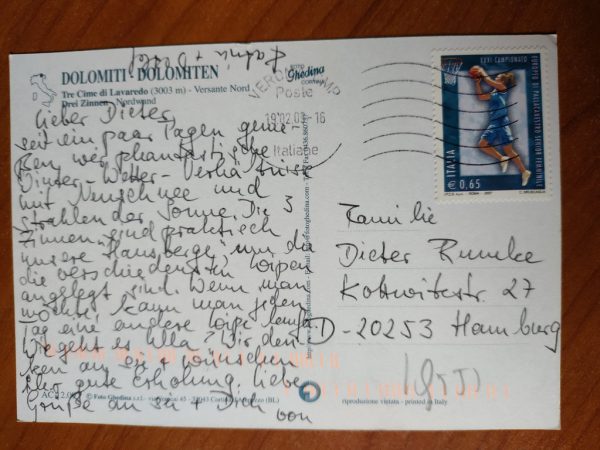 DOLOMITI - DOLOMITEN
Tre Cime di Lavaredo (3003 m) - Versante Nord
Drei Zinnen - Nordwand
FOTO
Ghedina
CORTINA
Lieber Dieter,
seit ein paar Tagen genie-
ßen wir phantastische
Winter-Wetter-Verhältnisse
mit Neuschnee und
strahlender Sonne. Die 3
Zinnen sind praktisch
unsere Hausberge, um die
die verschiedensten Loipen
angelegt sind. Wenn man
möchte, kann man jeden
Tag eine andere Loipe laufen
Wie geht es Ulla? Wir den-
ken an sie + wünschen
ihr gute Erholung. Liebe
Grüße an sie + Dich von
+ Detlef
VERONA CMP
Poste
19.02.0 - 16
Italiane
XXXI CAMPIONATO
EUROPEO DI PALLACANESTRO SENIOR FEMMINILE
ITALIA
€ 0,65
ROMA 2007
Familie
Dieter Rumke
Kottwitzstr. 27
D-20253 Hamburg
© Foto Ghedina s.r.l.
riproduzione vietata - printed in Italy